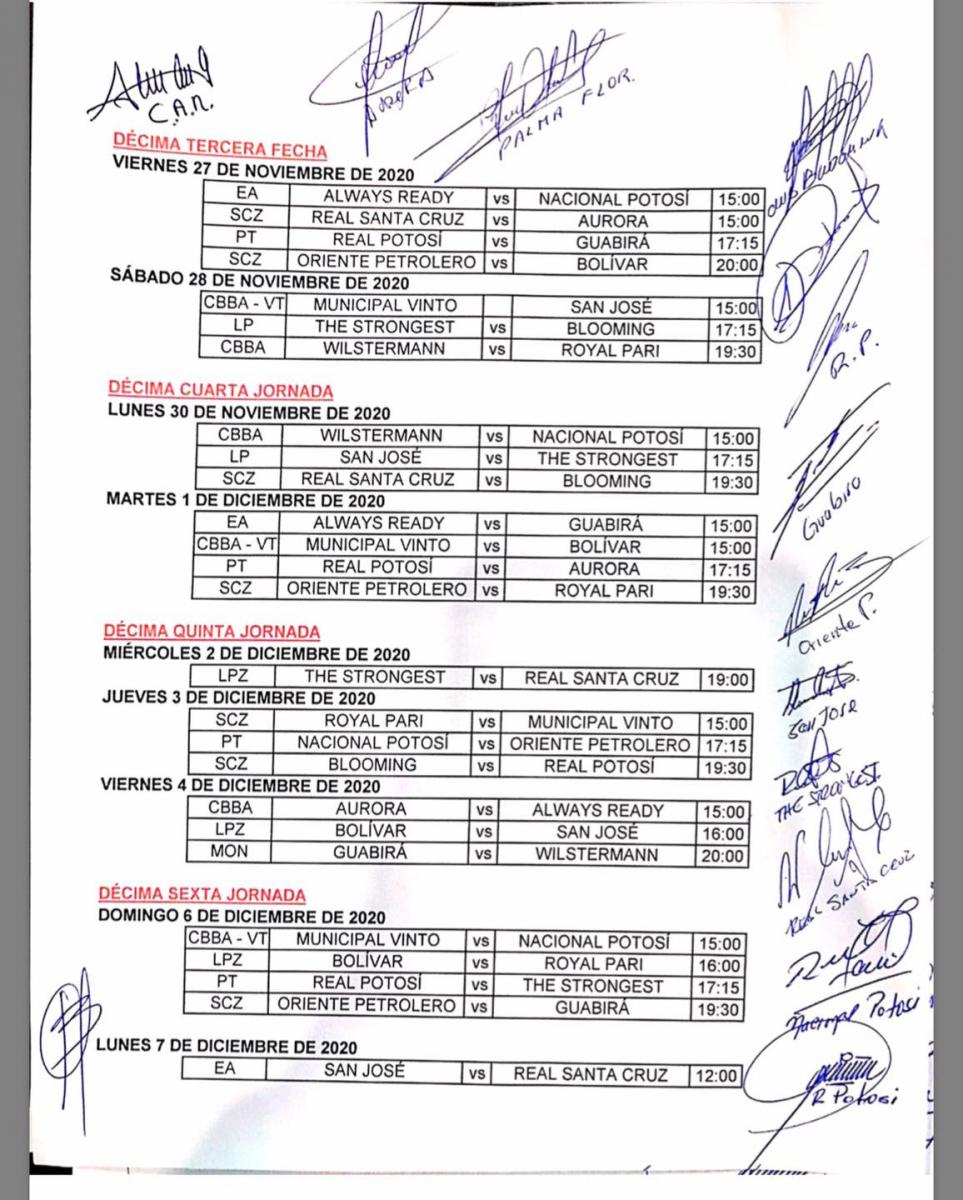 C.A.R.
AURORA
PALMA FLOR.
DÉCIMA TERCERA FECHA
VIERNES 27 DE NOVIEMBRE DE 2020
EA ALWAYS READY vs NACIONAL POTOSÍ 15:00
SCZ REAL SANTA CRUZ vs AURORA 15:00
PT REAL POTOSÍ vs GUABIRÁ 17:15
SCZ ORIENTE PETROLERO vs BOLÍVAR 20:00
SÁBADO 28 DE NOVIEMBRE DE 2020
CBBA - VT MUNICIPAL VINTO SAN JOSÉ 15:00
LP THE STRONGEST vs BLOOMING 17:15
CBBA WILSTERMANN vs ROYAL PARI 19:30
R.P.
DÉCIMA CUARTA JORNADA
LUNES 30 DE NOVIEMBRE DE 2020
CBBA WILSTERMANN vs NACIONAL POTOSÍ 15:00
LP SAN JOSÉ vs THE STRONGEST 17:15
SCZ REAL SANTA CRUZ vs BLOOMING 19:30
Guabira
MARTES 1 DE DICIEMBRE DE 2020
EA ALWAYS READY vs GUABIRÁ 15:00
CBBA - VT MUNICIPAL VINTO vs BOLÍVAR 15:00
PT REAL POTOSÍ vs AURORA 17:15
SCZ ORIENTE PETROLERO vs ROYAL PARI 19:30
Oriente P.
DÉCIMA QUINTA JORNADA
MIÉRCOLES 2 DE DICIEMBRE DE 2020
LPZ THE STRONGEST vs REAL SANTA CRUZ 19:00
JUEVES 3 DE DICIEMBRE DE 2020
SCZ ROYAL PARI vs MUNICIPAL VINTO 15:00
PT NACIONAL POTOSÍ vs ORIENTE PETROLERO 17:15
SCZ BLOOMING vs REAL POTOSÍ 19:30
San JOSE
VIERNES 4 DE DICIEMBRE DE 2020
CBBA AURORA vs ALWAYS READY 15:00
LPZ BOLÍVAR vs SAN JOSÉ 16:00
MON GUABIRÁ vs WILSTERMANN 20:00
THE STRONGEST.
REAL SANTA CRUZ
DÉCIMA SEXTA JORNADA
DOMINGO 6 DE DICIEMBRE DE 2020
CBBA - VT MUNICIPAL VINTO vs NACIONAL POTOSÍ 15:00
LPZ BOLÍVAR vs ROYAL PARI 16:00
PT REAL POTOSÍ vs THE STRONGEST 17:15
SCZ ORIENTE PETROLERO vs GUABIRÁ 19:30
Potosi
LUNES 7 DE DICIEMBRE DE 2020
EA SAN JOSÉ vs REAL SANTA CRUZ 12:00
R Potosi